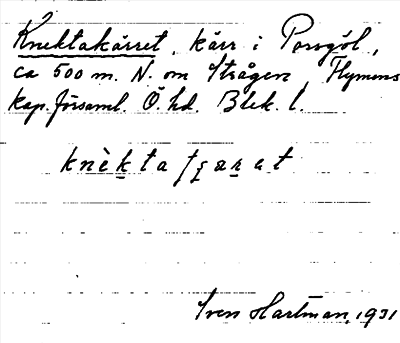 Knektakärret, kärr i Porsgöl,
ca 500 m. N. om Strågen, Flymens
kap.församl. Ö. hd. Blek. l.
knèkta
Sven Hartman, 1931